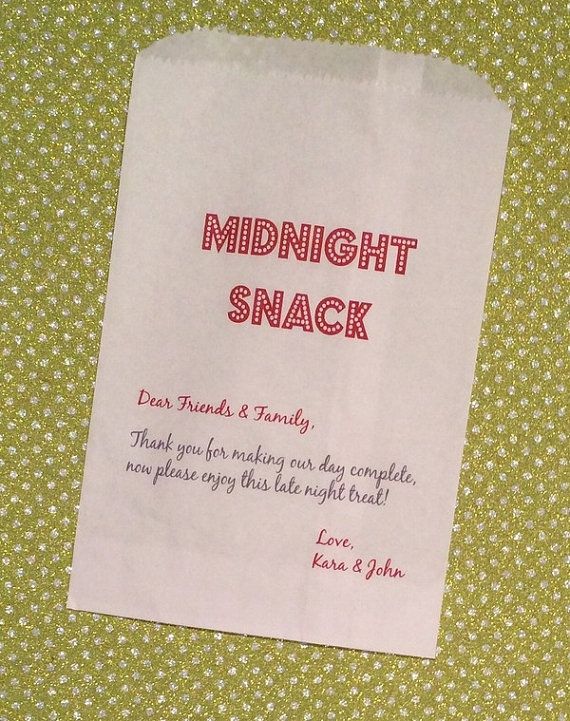 MIDNIGHT
SNACK
Dear Friends & Family,
Thank you for making our day complete,
now please enjoy this late night treat!
Love,
Kara & John